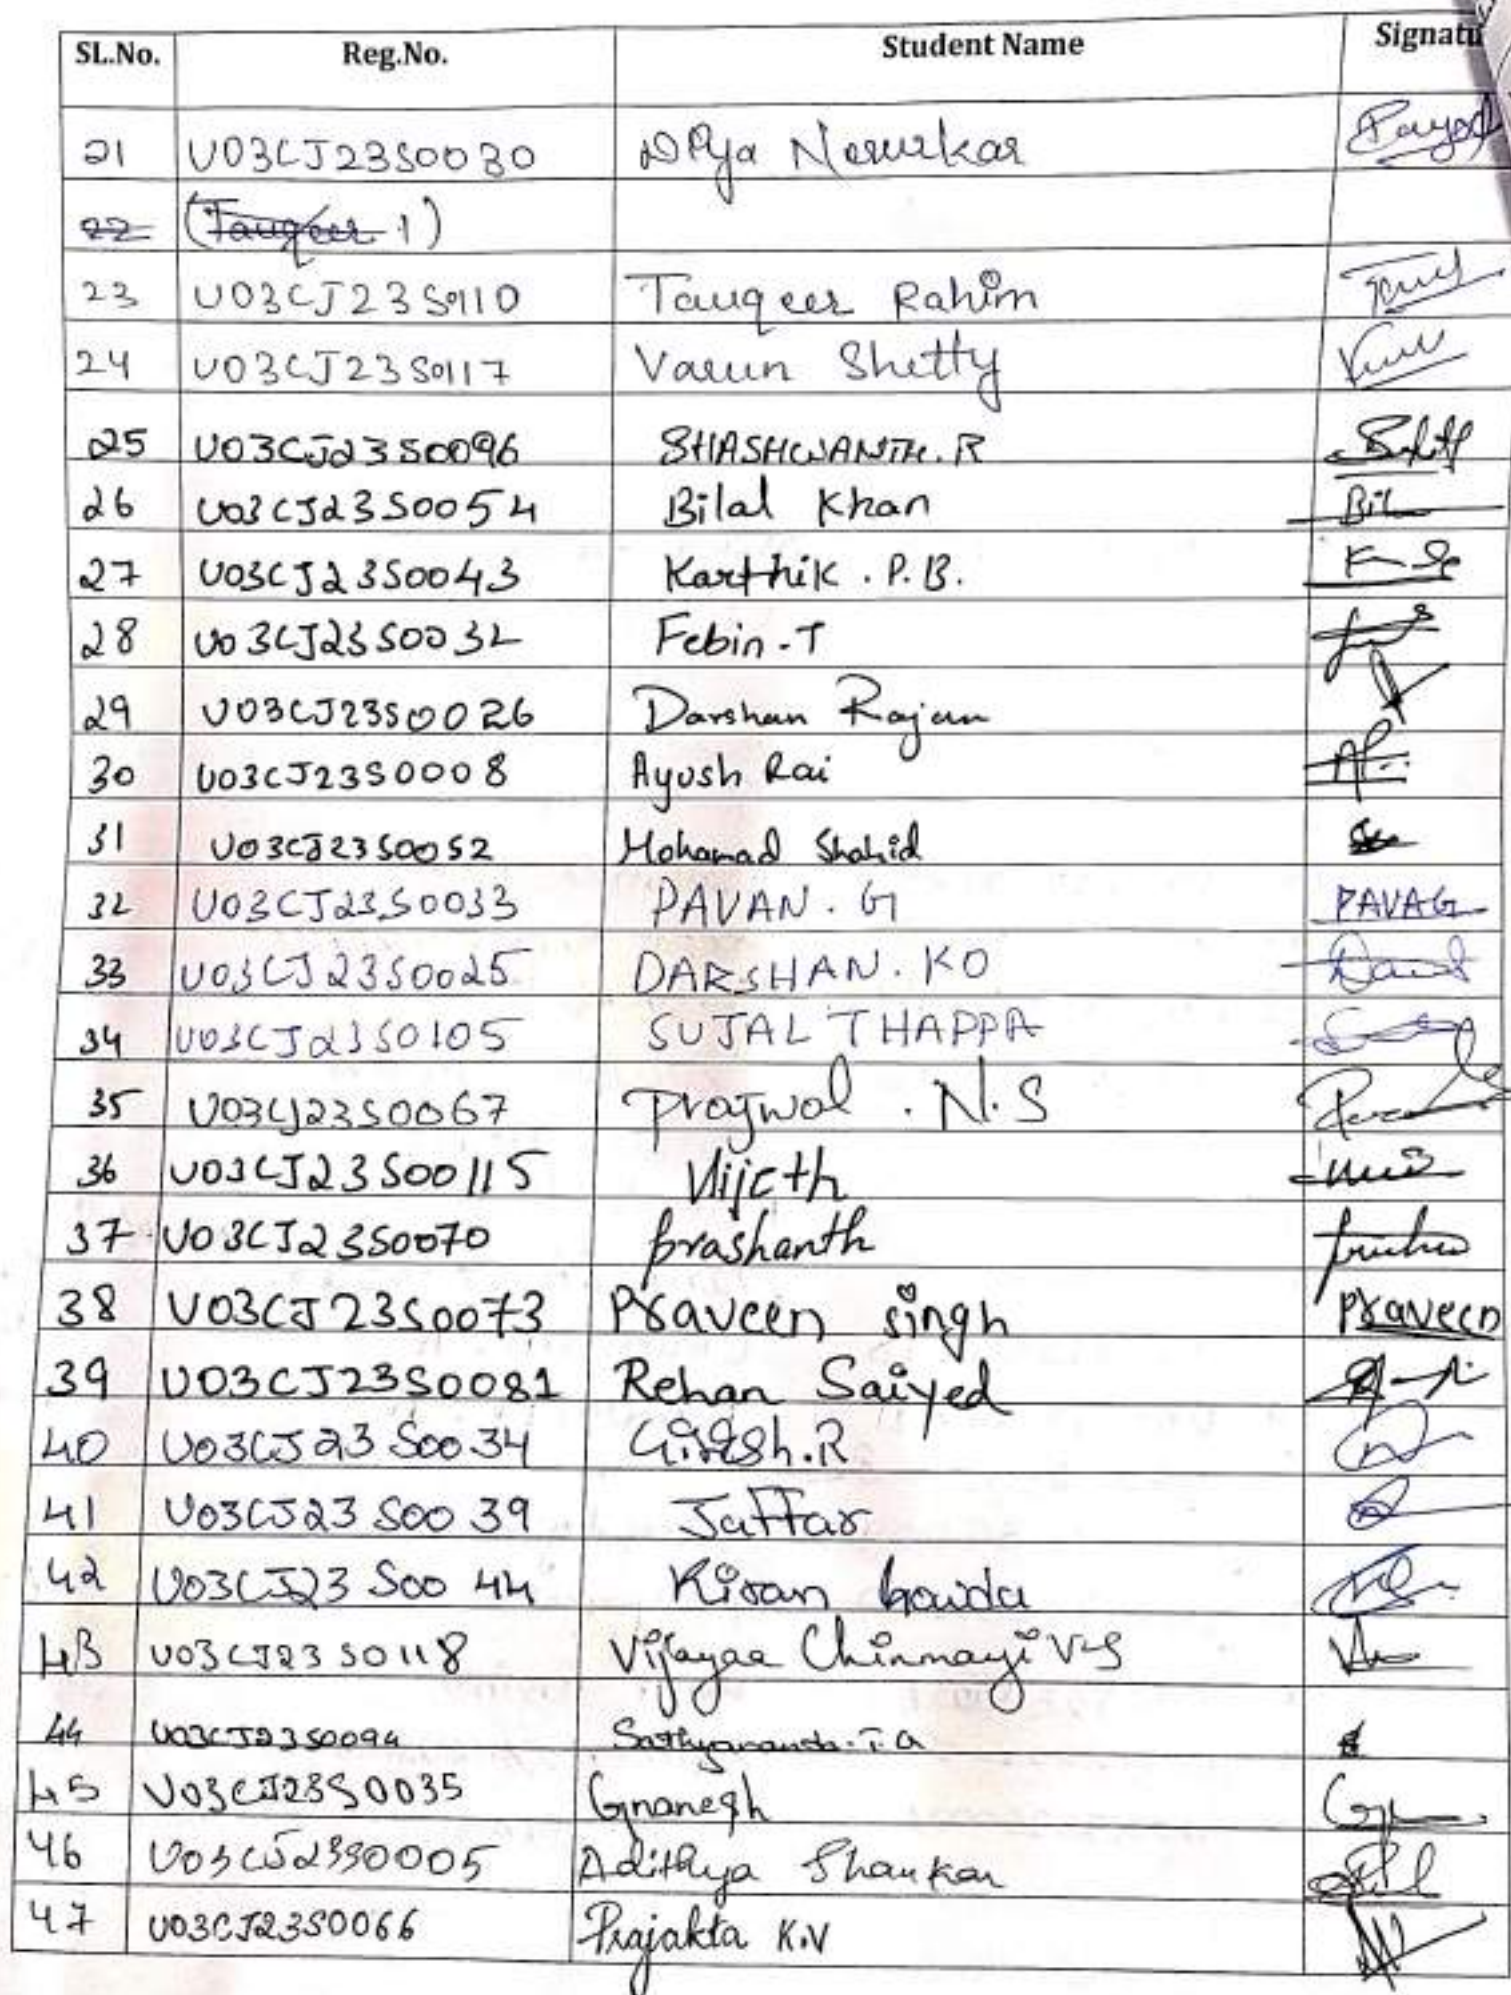 SL.No. Reg.No. Student Name Signatu
21 U03CJ23S0030 Diya Nerurkar
22 (Tauqeer 1)
23 U03CJ23S0110 Tauqeer Rahim
24 U03CJ23S0117 Varun Shetty
25 U03CJ23S0096 SHASHWANTH.R
26 U03CJ23S0054 Bilal Khan Bil
27 U03CJ23S0043 Karthik . P.B.
28 U03CJ23S0032 Febin-T
29 U03CJ23S0026 Darshan Rajan
30 U03CJ23S0008 Ayush Rai
31 U03CJ23S0052 Mohamad Shahid
32 U03CJ23S0033 PAVAN . G PAVAG
33 U03CJ23S0025 DARSHAN . KO
34 U03CJ23S0105 SUJAL THAPPA
35 U03CJ23S0067 Prajwal . N.S
36 U03CJ23S00115 Vijeth
37 U03CJ23S0070 Prashanth
38 U03CJ23S0073 Praveen singh Praveen
39 U03CJ23S0081 Rehan Saiyed
40 U03CJ23S0034 Girish.R
41 U03CJ23S0039 Jaffar
42 U03CJ23S0044 Kiran Gowda
43 U03CJ23S0118 Vijayaa Chinmayi V-S
44 U03CJ23S0094 Sathyananda.T.A
45 U03CJ23S0035 Gnanesh
46 U03CJ23S0005 Adithya Shankar
47 U03CJ23S0066 Prajakta K.V